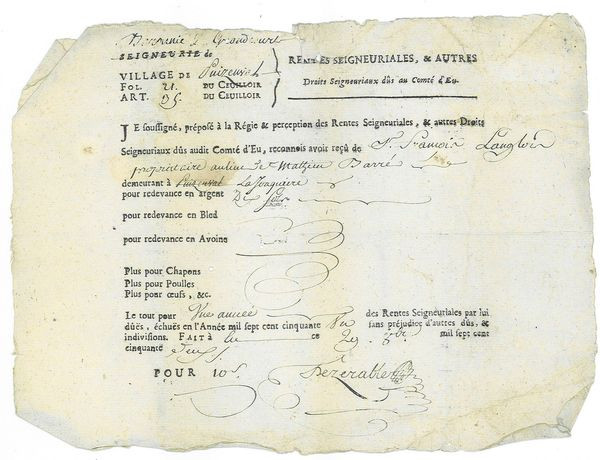 Baronnie de Grandcourt
SEIGNEURIE de
VILLAGE DE Puizenval
FOL. 21. DU CEUILLOIR
ART. 35. DU CEUILLOIR
RENTES SEIGNEURIALES, & AUTRES
Droits Seigneuriaux dûs au Comté d'Eu.
JE soussigné, préposé à la Régie & perception des Rentes Seigneuriales, & autres Droits
Seigneuriaux dûs audit Comté d'Eu, reconnois avoir reçu de Sr. francois Langlois
propriétaire au lieu de Mathieu Barré
demeurant à Puizenval La Jonquiere
pour redevance en argent
pour redevance en Bled
pour redevance en Avoine
Plus pour Chapons
Plus pour Poulles
Plus pour œufs, &c.
Le tout pour Une année des Rentes Seigneuriales par lui
dûës, échuës en l'Année mil sept cent cinquante Un sans préjudice d'autres dûs, &
indivisions. FAIT à Eu ce 29 mil sept cent
cinquante deux
POUR 10 s.